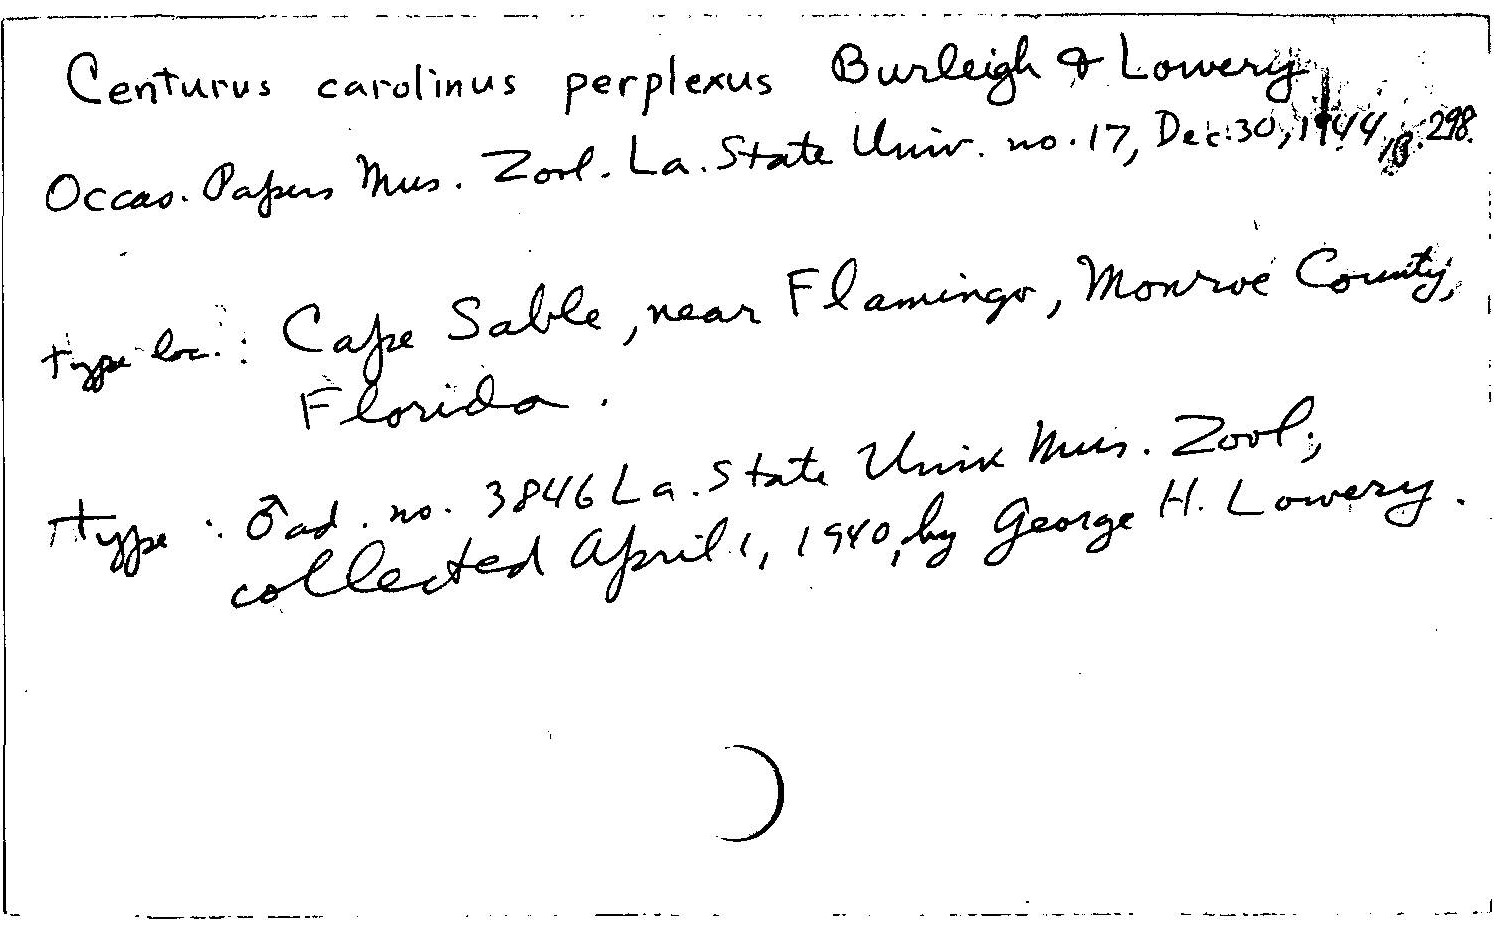 Centurus carolinus perplexus Burleigh & Lowery
Occas. Papers Mus. Zool. La. State Univ. no. 17, Dec. 30, 1944, p. 298.
type loc. : Cape Sable, near Flamingo, Monroe County,
Florida.
Type : ♂ ad. no. 3846 La. State Univ Mus. Zool.,
collected April 1, 1940, by George H. Lowery.